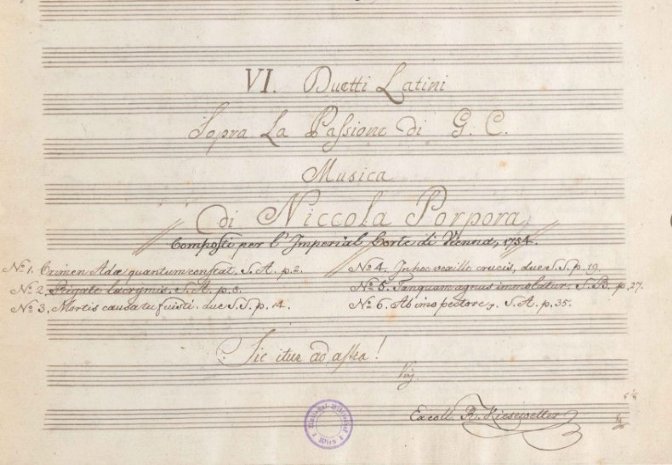 VI. Duetti Latini
Sopra La Passione di G. C.
Musica
di Niccola Porpora
Composti per l'Imperial Corte di Vienna, 1754.
No. 1. Crimen Adæ quantum constat. S. A. p. 2.
No. 2. Rigate lacrymis. S. A. p. 8.
No. 3. Mortis causa tu fuisti. due S. S. p. 14.
No. 4. In hoc vexillo crucis, due S. S. p. 19.
No. 5. Tanquam agnus immolatur. S. B. p. 27.
No. 6. Ab imo pectore, S. A. p. 35.
Sic itur ad astra!
Ex coll. R. Kiesewetter